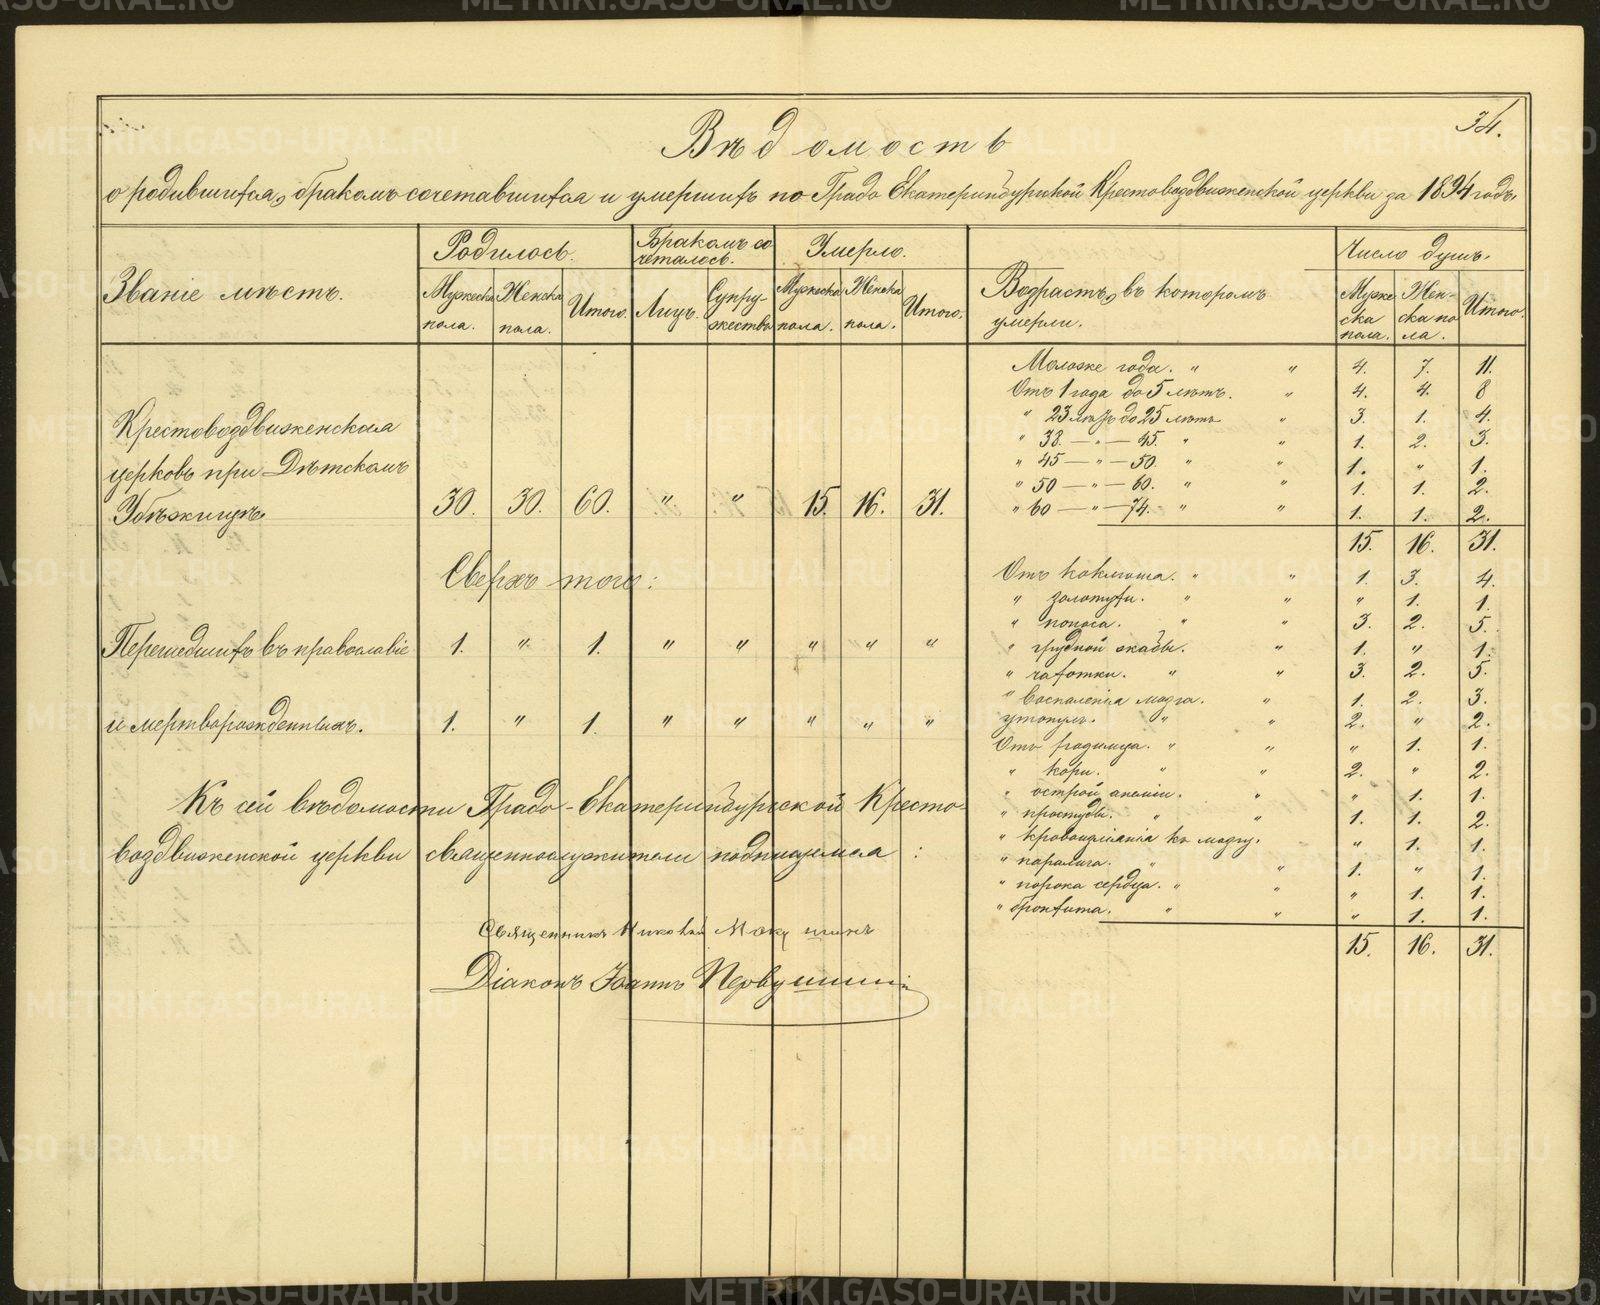 34.
Вѣдомость
о родившихся, бракомъ сочетавшихся и умершихъ по Градо Екатеринбургской Крестовоздвиженской церкви за 1894 годъ.
Званіе мѣстъ. Родилось. Бракомъ сочеталось. Умерло. Возрастъ, въ которомъ умерли. Число душъ.
Мужеска пола. Женска пола. Итого. Лицъ. Супружества Мужеска пола. Женска пола. Итого. Мужеска пола. Женска пола. Итого.
Крестовоздвиженская
церковь при Дѣтскомъ
Убѣжищѣ 30. 30. 60. " " 15. 16. 31.
Сверхъ того:
Перешедшихъ въ православіе 1. " 1. " " " " "
и мертворожденныхъ. 1. " 1. " " " " "
Къ сей вѣдомости Градо-Екатеринбургской Кресто-
воздвиженской церкви священнослужители подписуемся:
Священникъ Николай
Діаконъ Іоаннъ Первушинъ
Моложе года. " " 4. 7. 11.
Отъ 1 года до 5 лѣтъ. " 4. 4. 8
" 23 лѣтъ до 25 лѣтъ " 3. 1. 4.
" 38. — " — 45. " " 1. 2. 3.
" 45 — " — 50. " " 1. " 1.
" 50 — " — 60. " " 1. 1. 2.
" 60 — " — 74. " " 1. 1. 2.
15. 16. 31.
Отъ коклюша. " " 1. 3. 4.
" золотухи. " " " 1. 1.
" поноса. " " 3. 2. 5.
" грудной жабы. " 1. " 1.
" чахотки. " " 3. 2. 5.
" воспаленія мозга. " 1. 2. 3.
утонулъ. " " 2. " 2.
Отъ родимца. " " " 1. 1.
" кори. " " 2. " 2.
" острой анеміи. " " 1. 1.
" простуды. " " 1. 1. 2.
" кровоизліянія къ мозгу. " 1. 1.
" паралича. " " 1. " 1.
" порока сердца. " " " 1. 1.
" бронхита. " " " 1. 1.
15. 16. 31.
METRIKI.GASO-URAL.RU